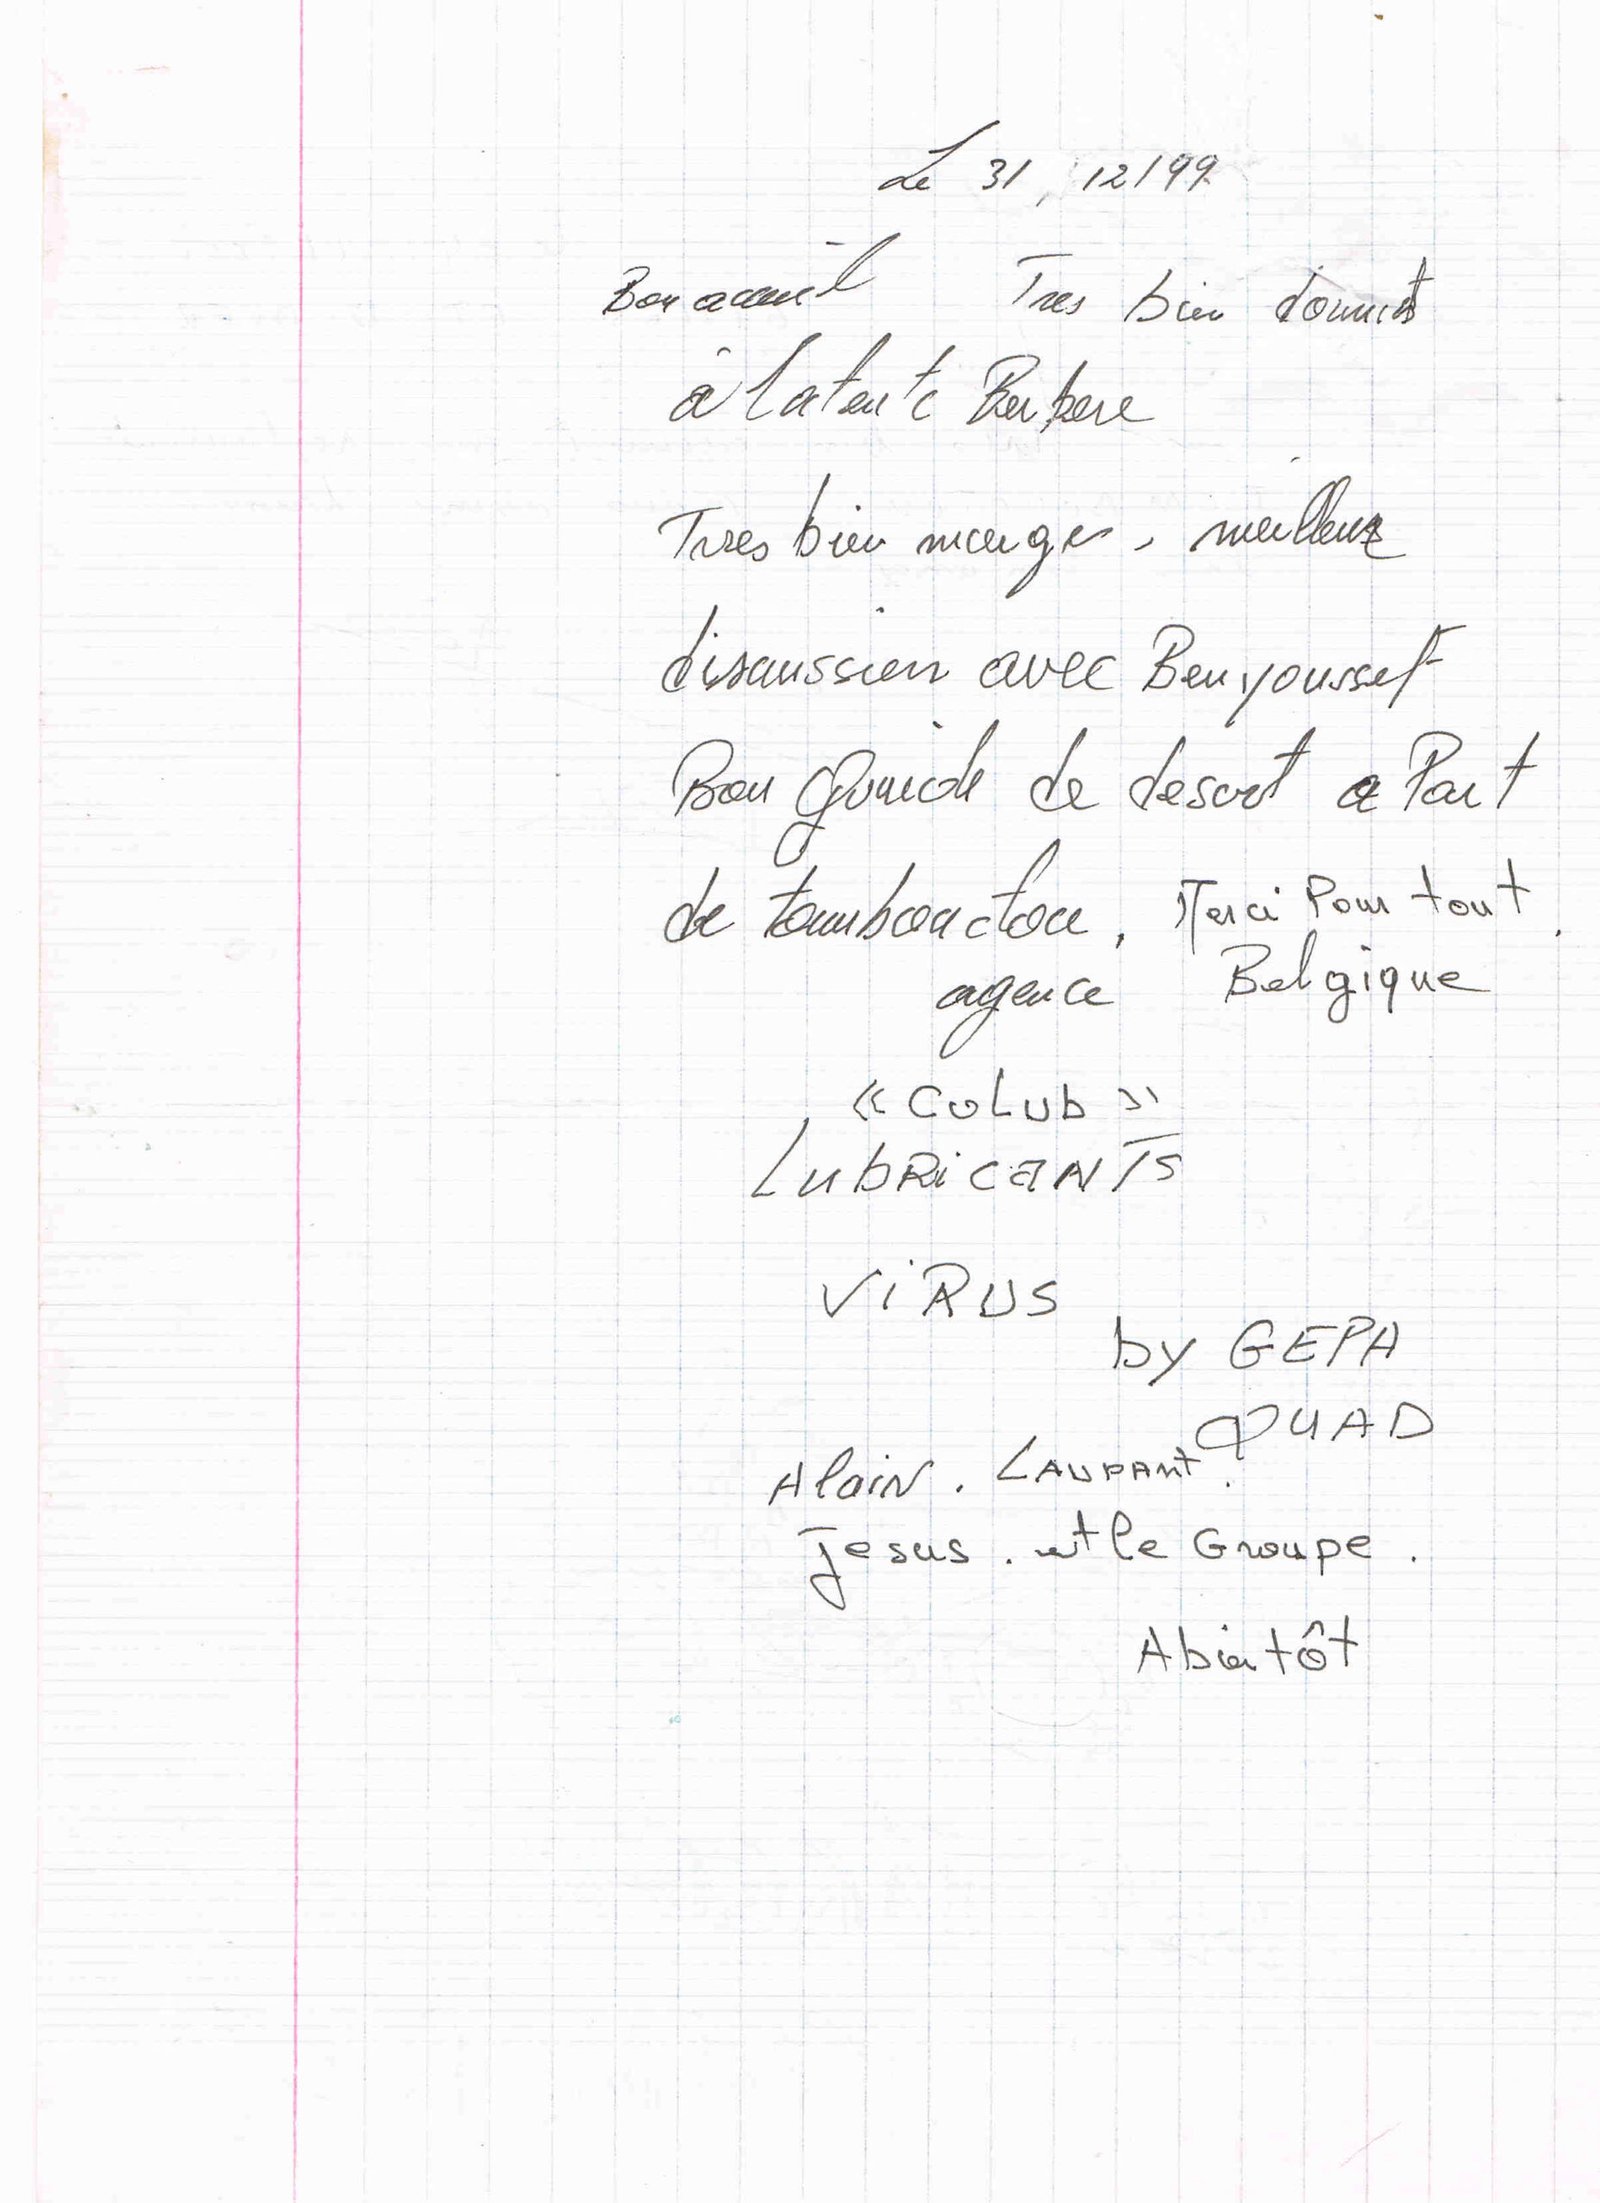 Le 31/12/99
Bon acceuil Tres bien dormits
à la tente Berbere
Tres bien manger, meilleur
discussien avec Ben youssef
Bon Guide de desert a Part
de tombouctou, Merci Pour tout.
agence Belgique
« COLUb »
LubRiCANTS
ViRUS
by GEPA
QUAD
Alain. LAURANt.
Jesus. et le Groupe.
Abientôt